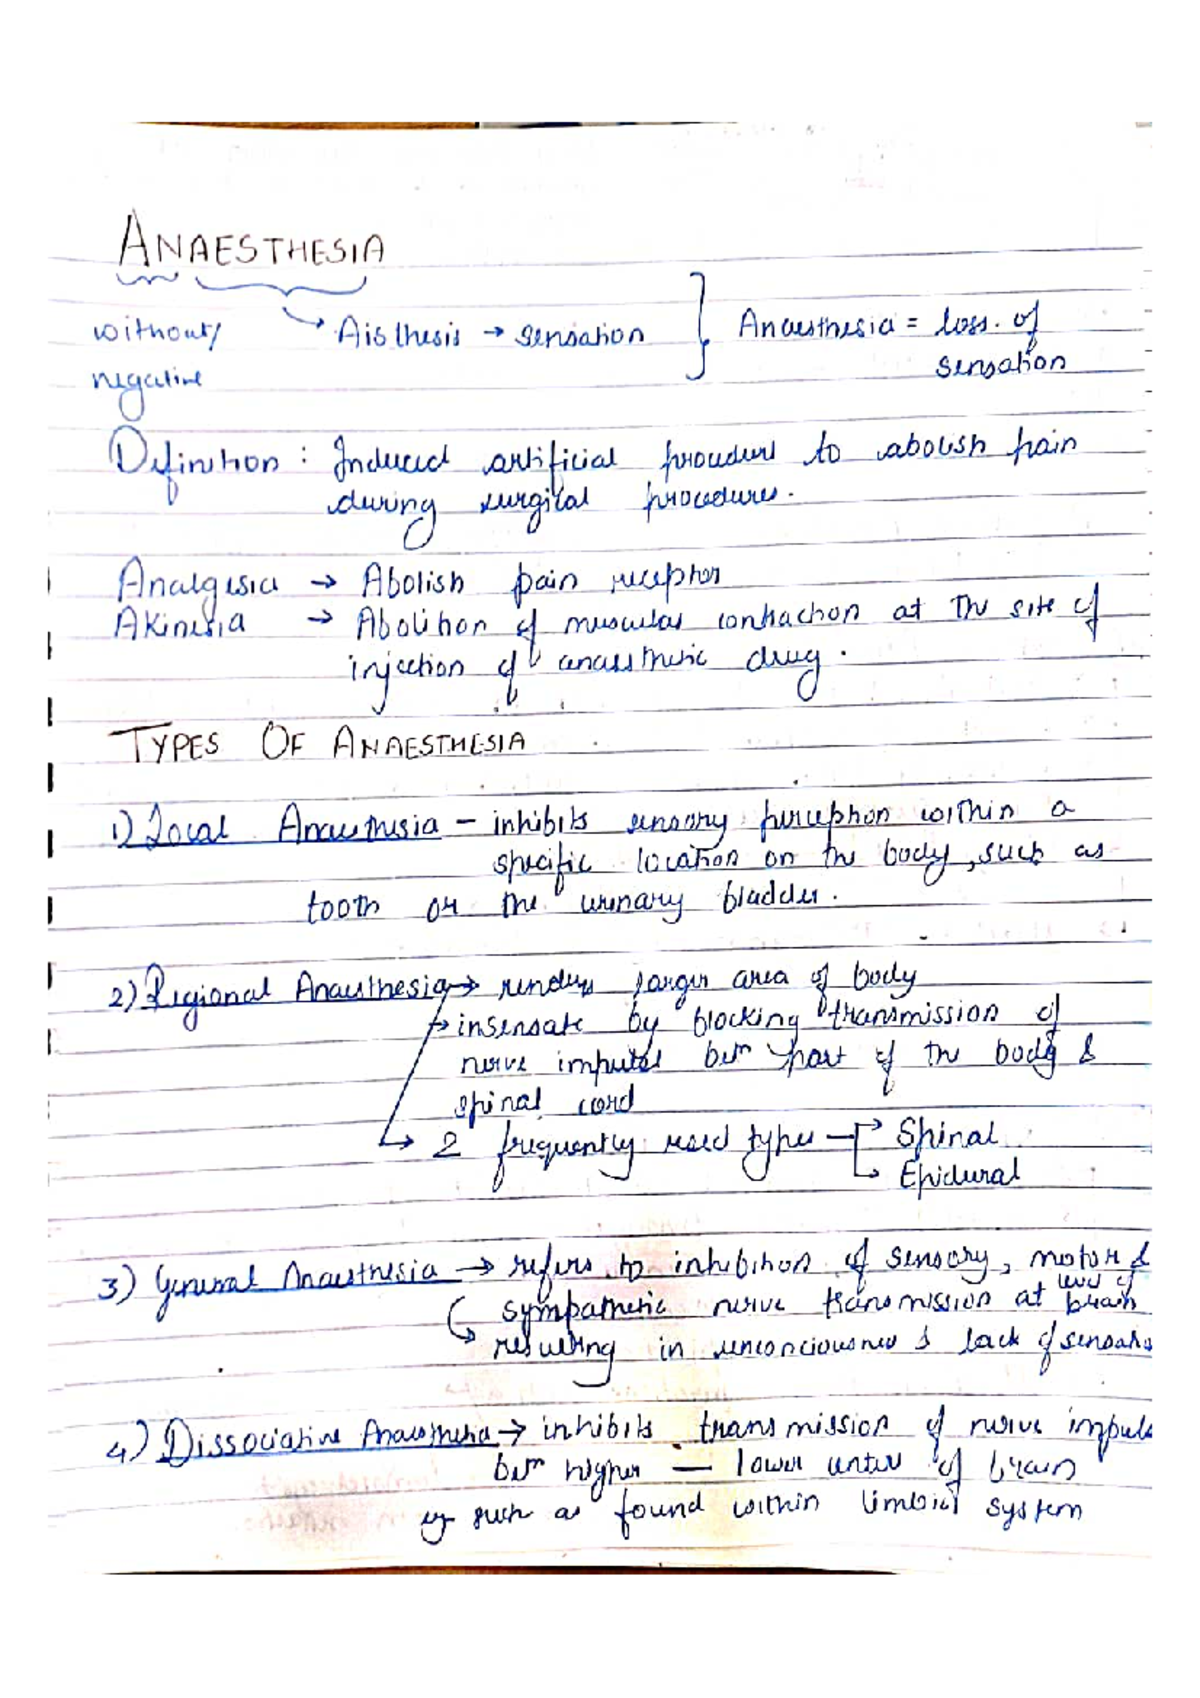 ANAESTHESIA
without/ → Aisthesis → sensation } Anaesthesia = loss of
negative sensation
Definition : Induced artificial procedure to abolish pain
during surgical procedures.
Analgesia → Abolish pain receptor
Akinesia → Abolition of muscular contraction at the site of
injection of anaesthetic drug.
TYPES OF ANAESTHESIA
1) Local Anaesthesia – inhibits sensory perception within a
specific location on the body, such as
tooth or the urinary bladder.
2) Regional Anaesthesia → renders larger area of body
→ insensate by blocking transmission of
nerve impulses betn part of the body &
spinal cord
→ 2 frequently used types → Spinal
→ Epidural
3) General Anaesthesia → refers to inhibition of sensory, motor &
sympathetic nerve transmission at level of brain
↳ resulting in unconciousness & lack of sensatn
4) Dissociative Anaesthesia → inhibits transmission of nerve impuls
betn higher — lower center of brain
eg such as found within limbic system